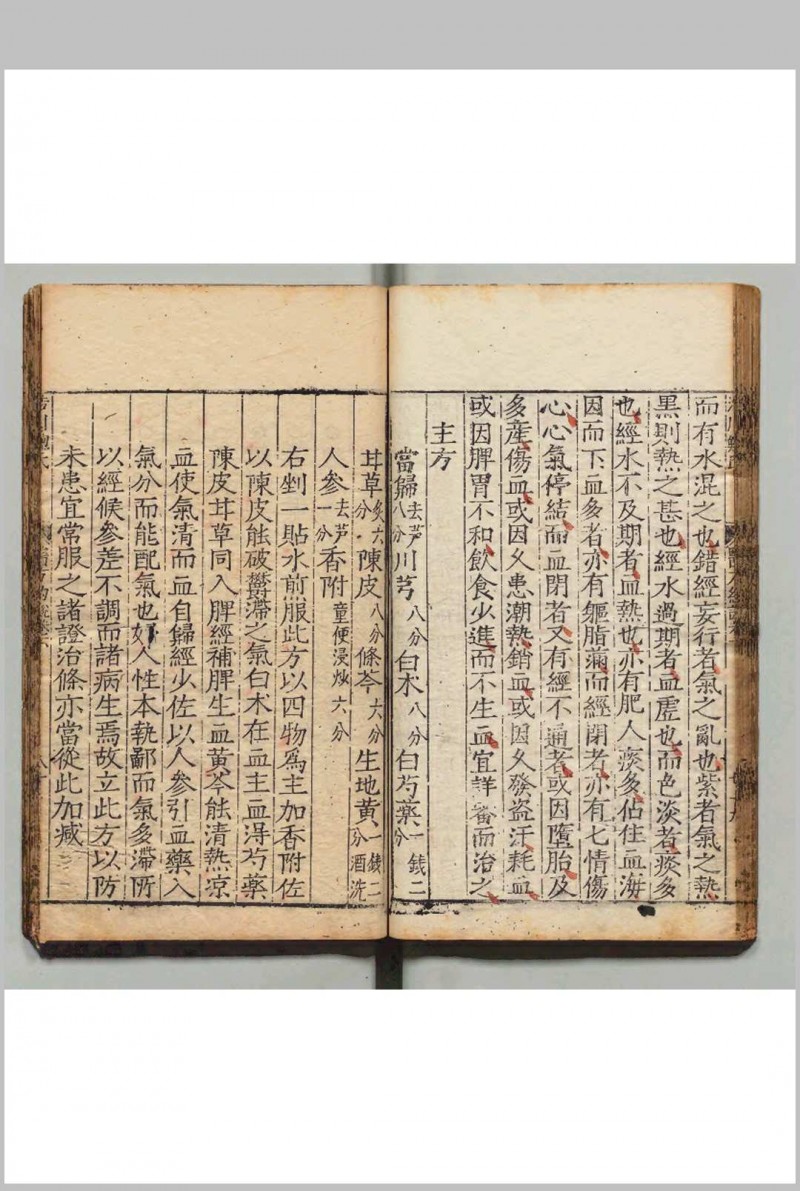 而有水混之也錯經妄行者氣之亂也紫者氣之熱
黑則熱之甚也經水過期者血虛也而色淡者痰多
也經水不及期者血熱也亦有肥人痰多佔住血海
因而下血多者亦有軀脂滿而經閉者亦有七情傷
心心氣停結而血閉者又有經不通者或因墮胎及
多產傷血或因久患潮熱銷血或因久發盜汗耗血
或因脾胃不和飲食少進而不生血宜詳審而治之
主方
當歸去芦八分川芎八分白术八分白芍藥一錢二分
甘草炙六分陳皮八分條芩六分生地黄一錢二分酒洗
人參去芦一分香附童便浸炒六分
右剉一貼水煎服此方以四物為主加香附佐
以陳皮能破鬱滯之氣白术在血主血得芍藥
陳皮甘草同入脾經補脾生血黄芩能清熱凉
血使氣清而血自歸經少佐以人參引血藥入
氣分而能配氣也婦人性本執鄙而氣多滯所
以經候參差不調而諸病生焉故立此方以防
未患宜常服之諸證治條亦當從此加减